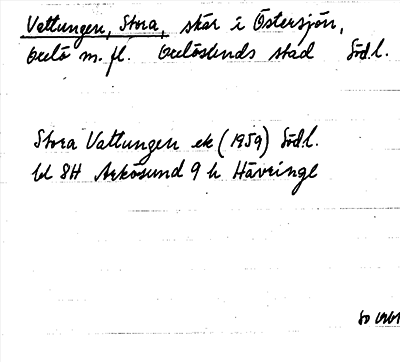 Vattungen, Stora, skär i Östersjön,
Oxelö m.fl. Oxelösunds stad Södl.
Stora Vattungen ek (1959) Södl.
bl 8H Arkösund 9 h Hävringe